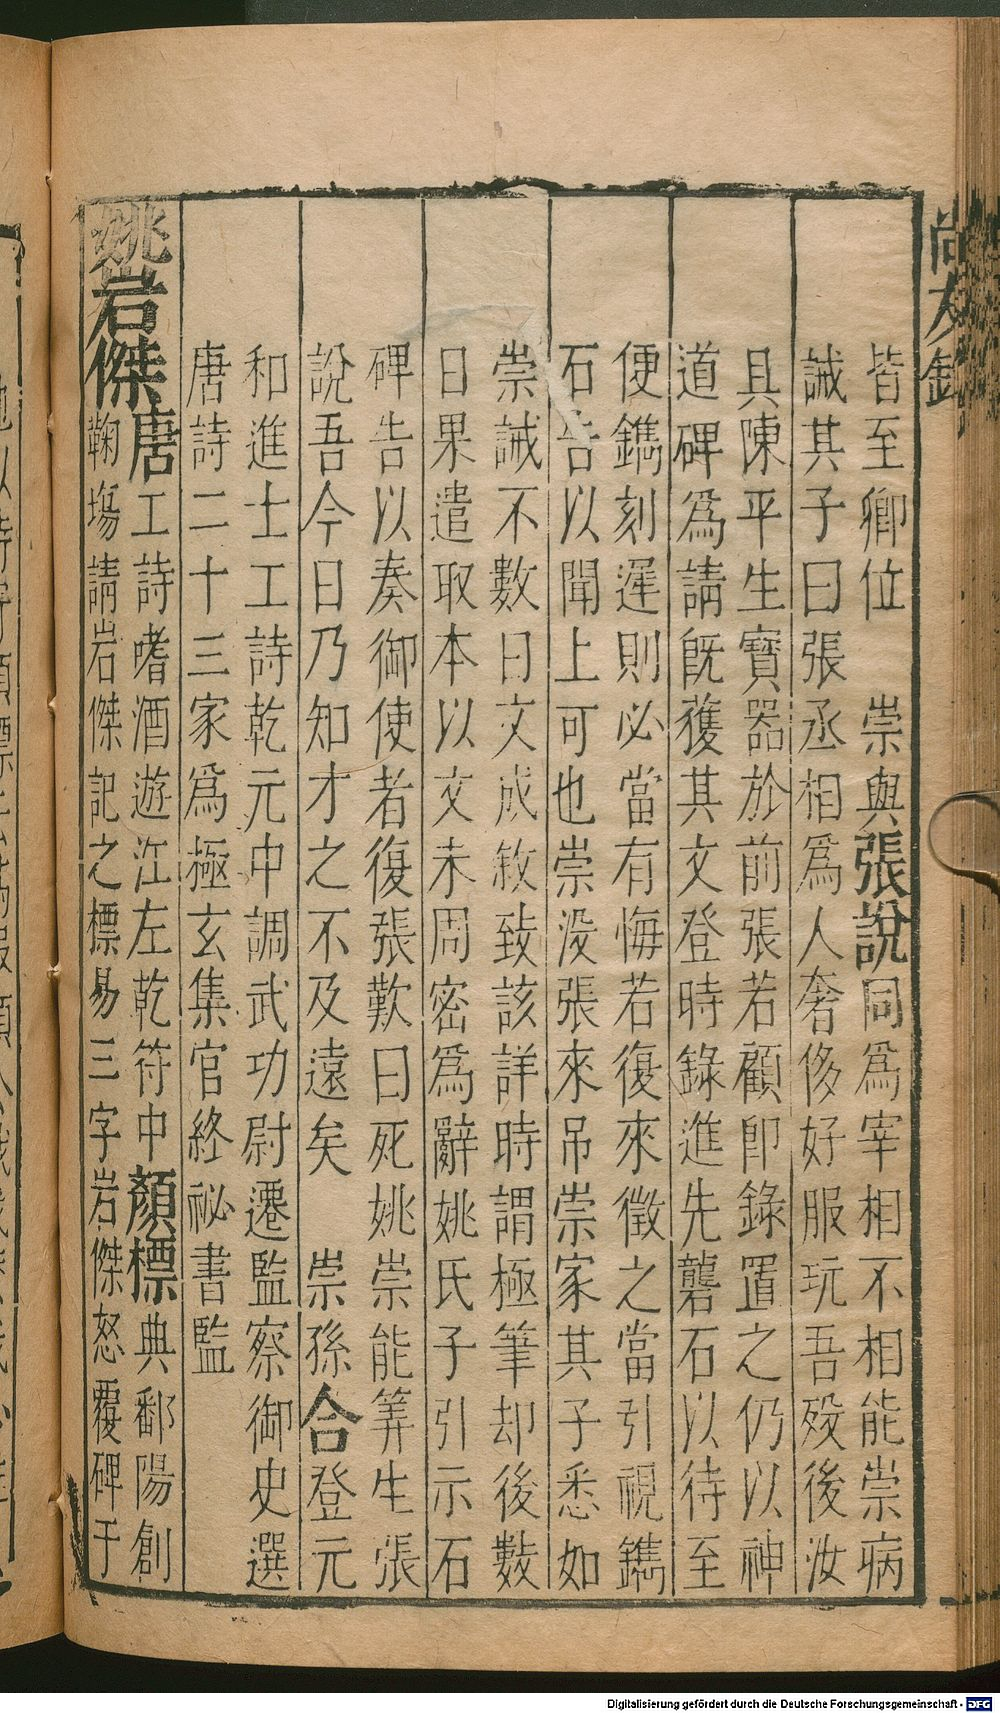 尚友錄
皆至卿位　崇與張說同爲宰相不相能崇病
誡其子曰張丞相爲人奢侈好服玩吾歿後汝
具陳平生寶器於前張若顧卽錄置之仍以神
道碑爲請旣獲其文登時錄進先礱石以待至
便鐫刻遲則必當有悔若復來徵之當引視鐫
石告以聞上可也崇沒張來吊崇家其子悉如
崇誡不數日文成敘致該詳時謂極筆却後數
日果遣取本以文未周密爲辭姚氏子引示石
碑告以奏御使者復張歎曰死姚崇能筭生張
說吾今日乃知才之不及遠矣　崇孫合登元
和進士工詩乾元中調武功尉遷監察御史選
唐詩二十三家爲極玄集官終祕書監
姚岩傑唐工詩嗜酒遊江左乾符中顏標典鄱陽創
鞠塲請岩傑記之標易三字岩傑怒覆碑于
Digitalisierung gefördert durch die Deutsche Forschungsgemeinschaft - DFG